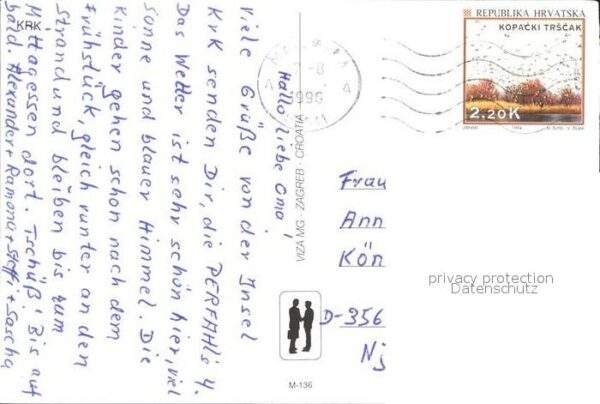 KRK
REPUBLIKA HRVATSKA
KOPAČKI TRŠČAK
2.20K
1996
Hallo liebe Oma!
Viele Grüße von der Insel
KrK senden Dir, die PERFAHL's 4.
Das Wetter ist sehr schön hier, viel
Sonne und blauer Himmel. Die
Kinder gehen schon nach dem
Frühstück, gleich runter an den
Strand und bleiben bis zum
Mittagessen dort. Tschüß! Bis auf
bald. Alexander + Ramona + Steffi + Sascha
VIZA MG - ZAGREB - CROATIA
Frau
Ann
Kön
D-356
privacy protection
Datenschutz
M-136